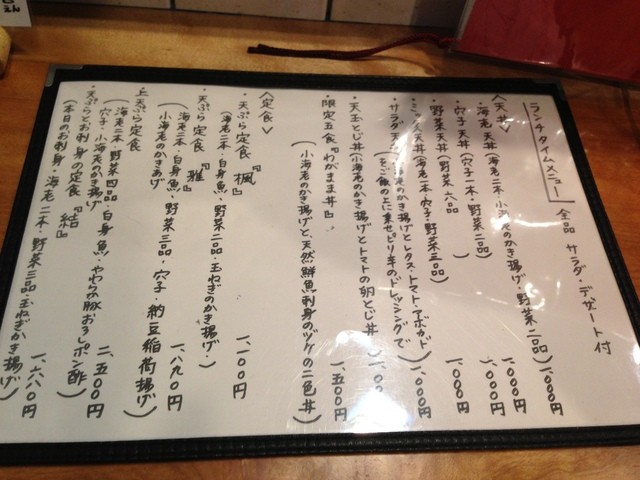 ランチタイムメニュー 全品 サラダ・デザート付
〈天丼〉
・海老天丼(海老二本・小海老のかき揚げ・野菜二品) 一、〇〇〇円
・穴子天丼(穴子一本・野菜二品) 一、〇〇〇円
・野菜天丼(野菜六品) 一、〇〇〇円
・ミックス天丼(海老一本・穴子・野菜三品) 一、〇〇〇円
・サラダ天丼(小海老のかき揚げとレタス・トマト・アボカド
をご飯の上に乗せピリ辛のドレッシングで) 一、〇〇〇円
・天玉とじ丼(小海老のかき揚げとトマトの卵とじ丼)
・限定五食『わがまま丼』 一、五〇〇円
(小海老のかき揚げと、天然鮮魚刺身のヅケの二色丼)
〈定食〉
・天ぷら定食『楓』 一、一〇〇円
(海老二本・白身魚・野菜二品・玉ねぎのかき揚げ・)
・天ぷら定食『雅』 一、八九〇円
(海老二本・白身魚・野菜三品・穴子・納豆稲荷揚げ
小海老のかきあげ)
・上天ぷら定食 二、五〇〇円
(海老二本・野菜四品・白身魚・やわらか豚おろしポン酢
穴子・小海老のかき揚げ)
・天ぷらとお刺身の定食『結』 一、六八〇円
(本日のお刺身・海老二本・野菜三品・玉ねぎかき揚げ)